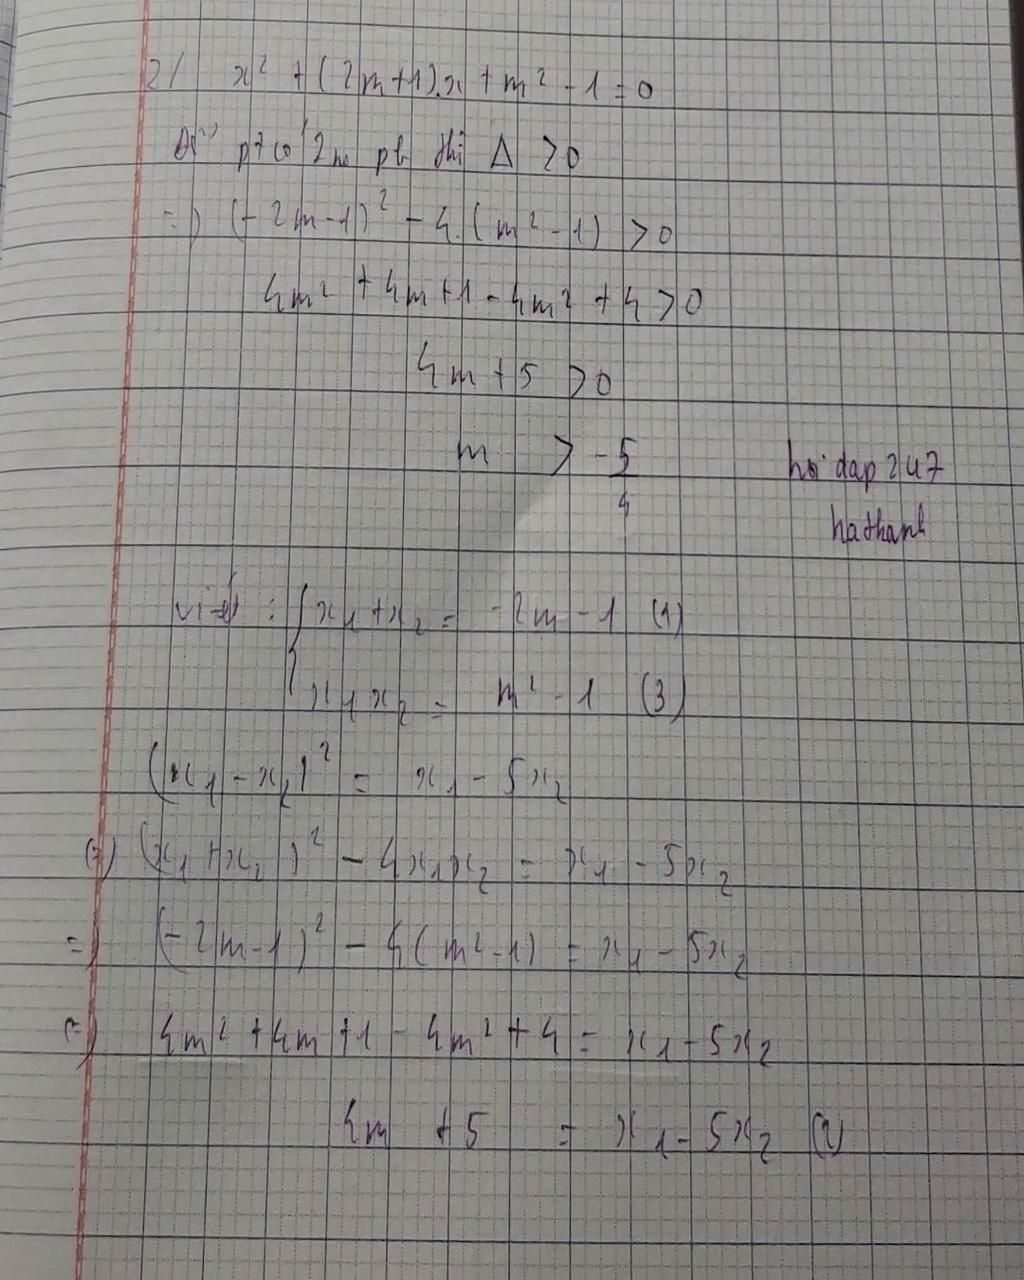 2/ x² + (2m+1).x + m² - 1 = 0
Để pt có 2 no pb thì Δ > 0
=) (-2m-1)² - 4.(m² - 1) > 0
4m² + 4m + 1 - 4m² + 4 > 0
4m + 5 > 0
m > -5/4
hoi dap 247
hathanh
viét : { x₁ + x₂ = -2m - 1 (1)
x₁x₂ = m² - 1 (3)
(x₁ - x₂)² = x₁ - 5x₂
(=) (x₁ + x₂)² - 4x₁x₂ = x₁ - 5x₂
=) (-2m-1)² - 4(m²-1) = x₁ - 5x₂
(=) 4m² + 4m + 1 - 4m² + 4 = x₁ - 5x₂
4m + 5 = x₁ - 5x₂ (2)